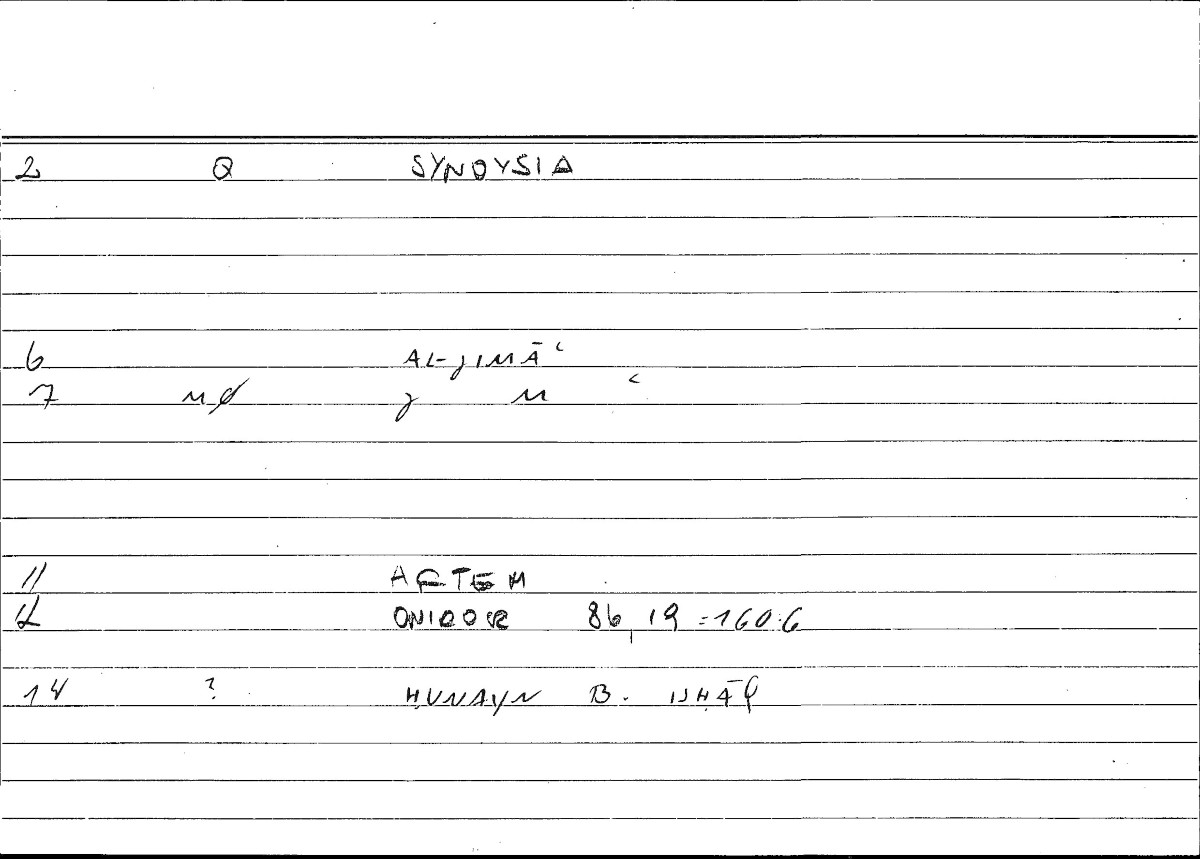 2 Q SYNOYSIA
6 AL-JIMĀʿ
7 MØ J M ʿ
11 ARTEM
12 ONIROCR 86,19=160:6
14 ? ḤUNAYN B. ISḤĀQ